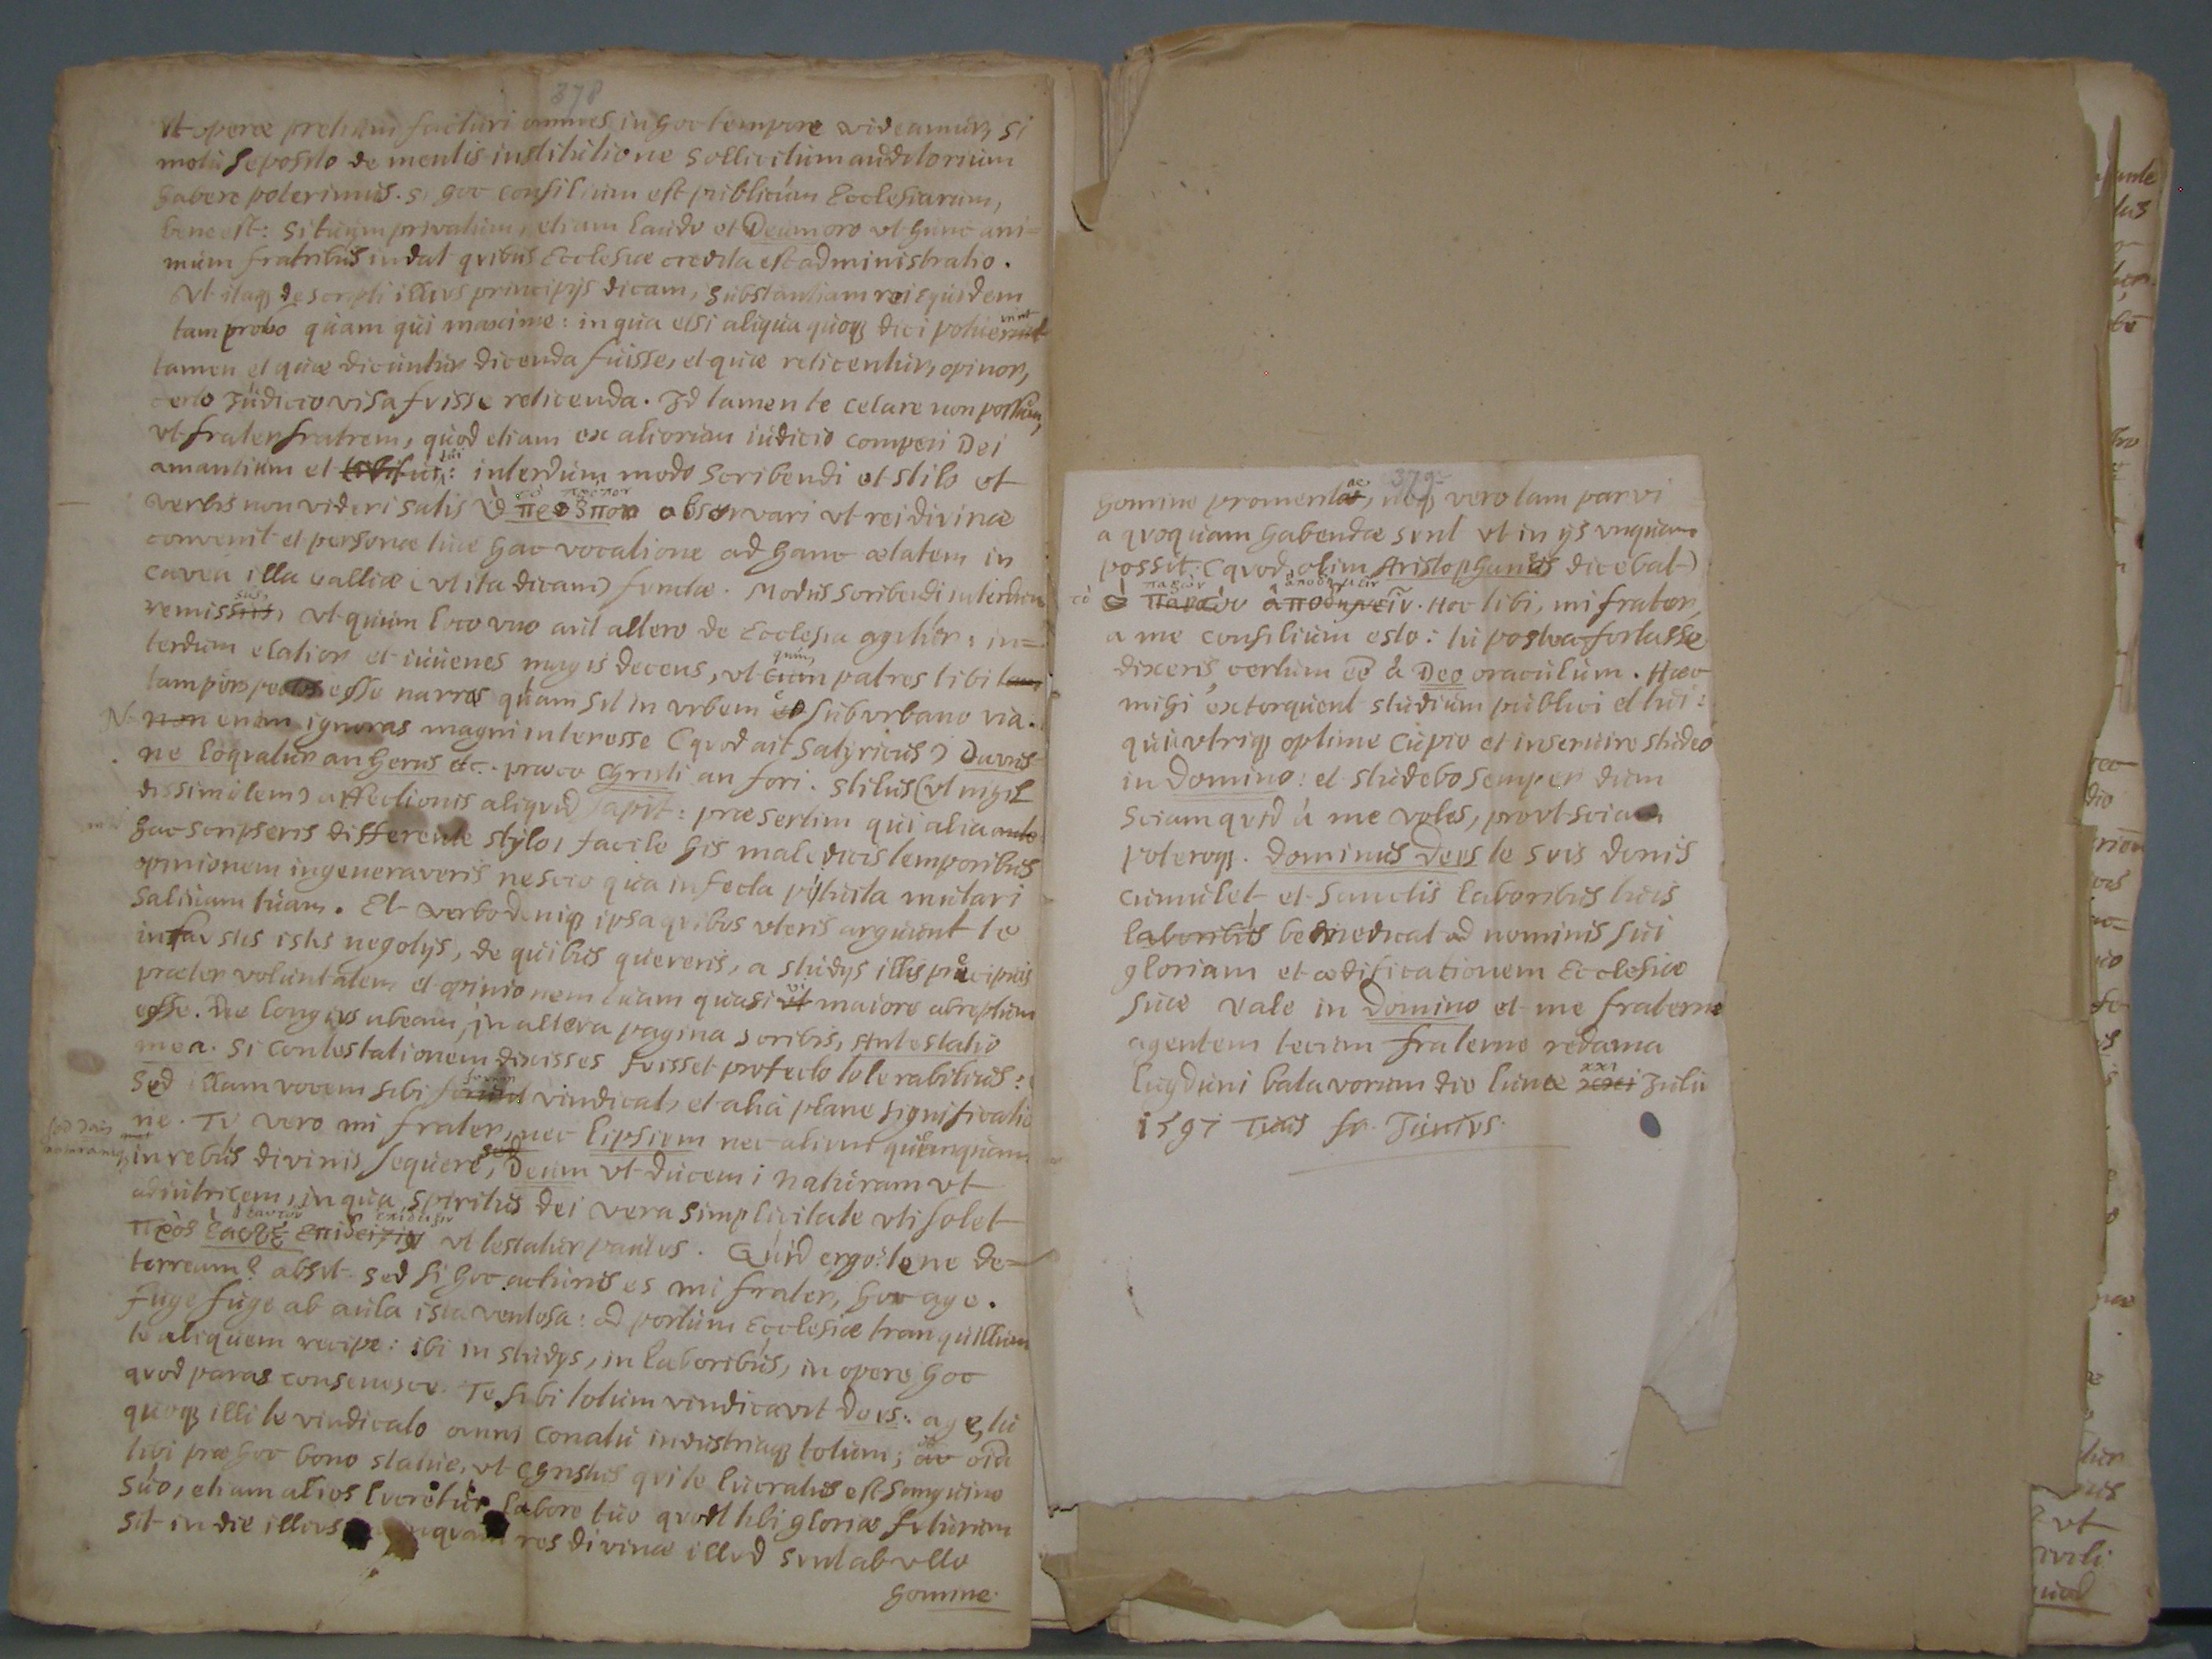 378
Ut operæ pretium facturi omnes in hoc tempore videamur, si
motu seposito de mentis institutione sollicitum auditorium
habere poterimus. si hoc consilium est publicum Ecclesiarum,
bene est: si tuum privatum, etiam laudo et Deum oro ut hunc ani=
mum fratribus indat quibus Ecclesiæ credita est administratio.
Ut itaq; de scripti illius principijs dicam, substantiam rei equidem
tam probo quam qui maxime: in qua etsi aliqua quoq; dici potuerunt
tamen et quæ dicuntur dicenda fuisse, et quæ reticentur, opinor,
certo Judicio visa fuisse reticenda. Id tamen te celare non possum,
ut frater fratrem, quod etiam ex aliorum iudicio comperi Dei
amantium et tui: interdum modo scribendi et stilo et
verbis non videri satis τὸ πρέπον observari ut rei divinæ
convenit et personæ tuæ hac vocatione ad hanc ætatem in
cavea illa Galliæ (ut ita dicam) functæ. Modus scribendi interdum
remissus, ut quum loco uno aut altero de Ecclesia agitur: in=
terdum elatior et iuuenes magis decens, ut quum patres tibi
tam perspectos esse narras quam sit in urbem è suburbano via.
N. non enim ignoras magni interesse (quod ait Satyricus) Davus
ne loquatur an herus etc. præco Christi an fori. Stilus (ut nihil
dissimulem) affectionis aliquid sapit: præsertim qui alia ante
hac scripseris differente stylo, facile his maledicis temporibus
opinionem ingeneraveris nescio qua infecta pituita mutari
salivam tuam. Et verba deniq; ipsa quibus uteris arguunt te
infaustis istis negotijs, de quibus quereris, a studijs illis præcipuis
præter voluntatem et opinionem tuam quasi vi maiore abreptum
esse. Ne longius abeam, in altera pagina scribis, Antestatio
mea. Si contestationem dixisses fuisset profecto tolerabilius:
Sed illam vocem sibi forum vindicat, et alia plane significatio
ne. Tu vero mi frater, nec Lipsium nec alium quemquam
in rebus divinis sequere, sed Deum ut ducem; naturam ut
adiutricem, in qua spiritus dei vera simplicitate uti solet
πρὸς ἐπίδειξιν ut testatur paulus. Quid ergo? tene de=
terream? absit. Sed si hoc acturus es mi frater, hoc age.
fuge fuge ab aula ista ventosa: ad portum Ecclesiæ tranquillum
te aliquem recipe: ibi in studijs, in laboribus, in opere hoc
quod paras consenesce. Te sibi totum vindicavit Deus: age, tu
quoq; illi te vindicato omni conatu industriaq; totum; ac oia
tibi præ hoc bono statue, ut Christus qui te lucratus est sanguine
suo, etiam alios lucretur labore tuo quod tibi gloriæ futurum
sit in die illius res divinæ illud sunt ab ullo
homine.
379
homine promeritæ, neq; vero tam parvi
a quoquam habendæ sunt ut in ijs unquam
possit (quod olim Aristophanes dicebat)
ὁ παρὼν ἀποδημεῖν. Hoc tibi, mi frater,
a me consilium esto: tu postea fortasse
dixeris, certum eē à Deo oraculum. Hæc
mihi extorquent studium publici et tui:
qui utriq; optime cupio et inservire studeo
in Domino: et studebo semper dum
sciam quid à me voles, prout sciam
poteroq;. Dominus Deus te suis donis
cumulet et sanctis laboribus tuis
laboribus benedicat ad nominis sui
gloriam et ædificationem Ecclesiæ
suæ Vale in Domino et me fraterne
agentem tecum fraterne redama
Lugduni batavorum die lunæ xxi Julii
1597 Tuus fr. Junius.